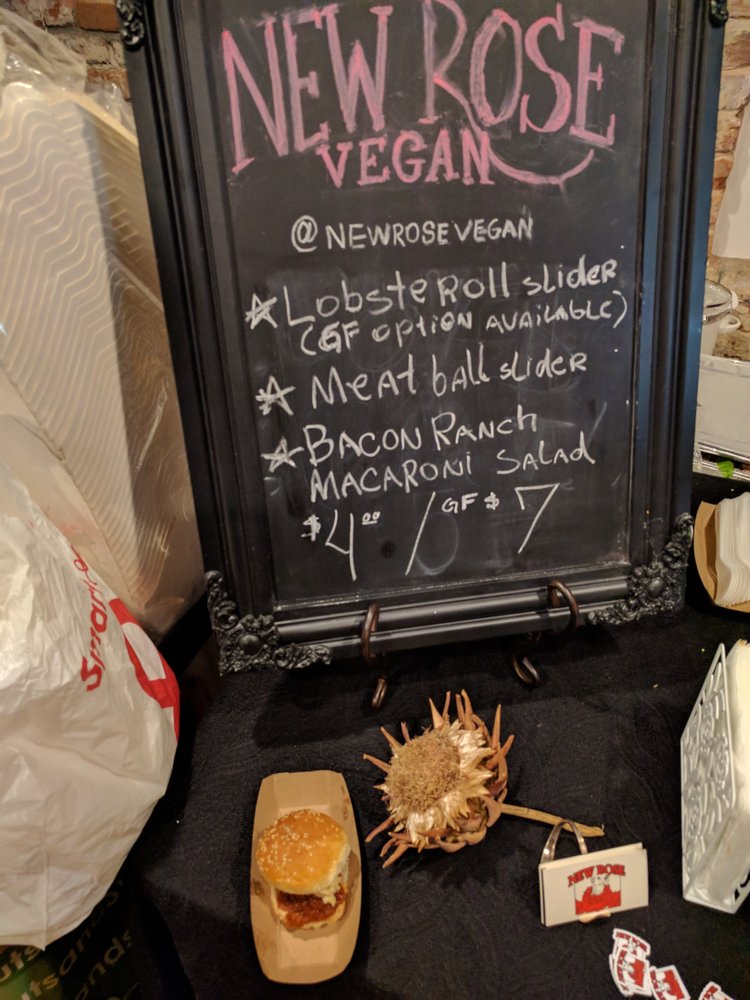 NEW ROSE
VEGAN
@NEWROSEVEGAN
LobsteRoll slider
(GF option AVAILABLE)
Meatball slider
BACON RANCH
MACARONI SALAD
$4.00 / GF $7
NEW ROSE